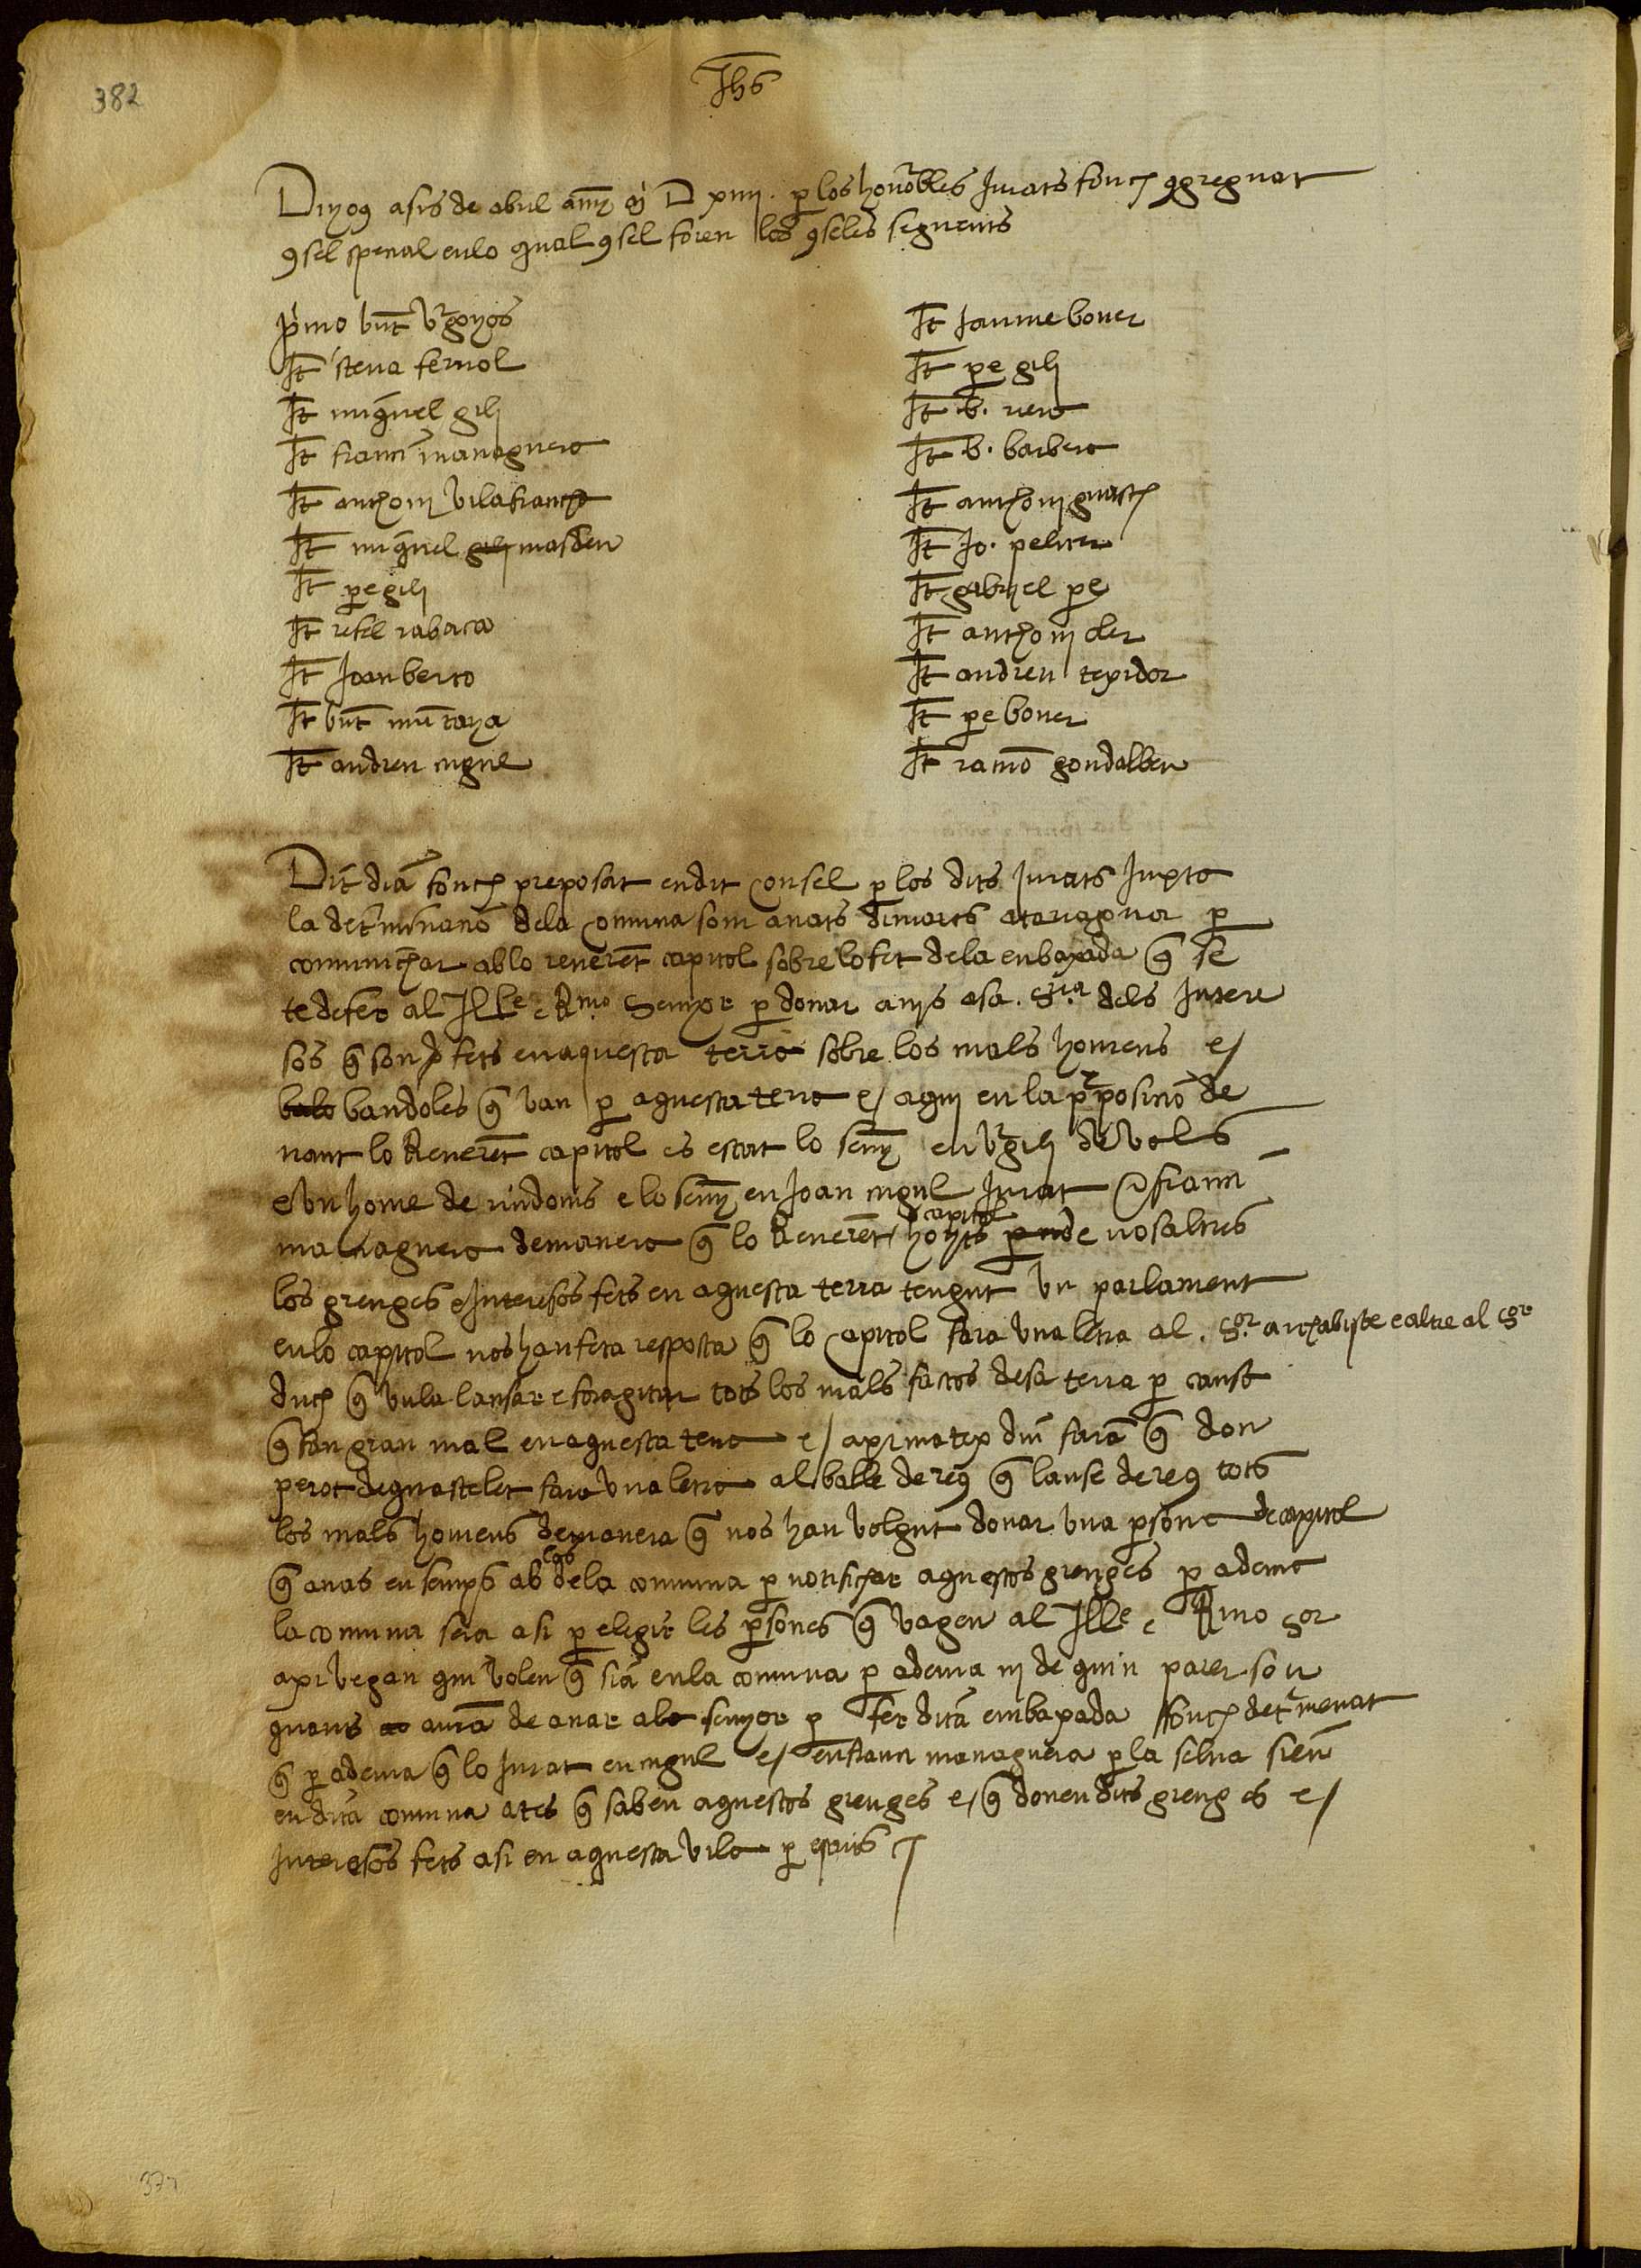 382
Jhs
Digos asis de abril any M D xiiii. per los honorbles Jurats fonch congreguat
consel special en lo qual consel foren los conseles seguents
primo bnt Virgoygos
It steva ferriol
It miguel gili
It franci managuera
It anthoni vilafrancha
It miguel gili masdeu
It pere gili
It refel rabaca
It Joan berto
It bnt muntanya
It andreu cugul
It Jaume boner
It pere gili
It b. riera
It b. barbera
It anthoni guasch
It Jo. pelicer
It gabriel pere
It anthoni oler
It andreu texidor
It pere boner
It ramon gondalbeu
Dit dia fonch preposat en dit Consel per los dits Jurats Juxta
la determinacio dela Comuna som anats dimarts a taragona per
comunichar ab lo reverent capitol sobre lo fet dela enbaxada que se
te de fer al Ille e Rmo Senyor per donar avis a sa. Sria dels Intere
sos que son fets en aquesta terra sobre los mals homens e/
balo bandoles que van per aquesta terra e/ aqui en la preposicio de
nant lo Reverent capitol es estat lo seny en Vr gili de Vols
e vn home de vindonis e lo seny en Joan cugul Jurat e franci
managuera demanera que lo Reverent capitol hoyts per de nosaltres
los greuges e Interesos fets en aquesta terra tengut vn parlament
en lo capitol nos han feta resposta que lo Capitol fara vna letra al. Sor. archabispe e altre al Sor
duch que vula lansar e foragitar tots los mals factos de sa terra per causa
que fan gran mal en aquesta terra e/ axi matex diu fara que don
perot de guastelet fara vna letra al batle de reus que lanse de reus tots
los mals homens demanera que nos han volgut donar vna persona de capitol
que anas ensemps ab los dela comuna per notifichar aquestos greuges per adema
la comuna sera asi per elegir les persones que vagen al Ille e Rmo Sor
axi vegan qui volen que sia en la comuna per adema ni de quin parer son
quants auran de anar al senyor per fer dita embaxada fonch determenat
que per adema que lo Jurat en cugul e/ en franci managuera per la selva sien
en dita comuna ates que saben aquestos greuges e/ que donen dits greuges e/
Interesos fets asi en aquesta vila per escrits